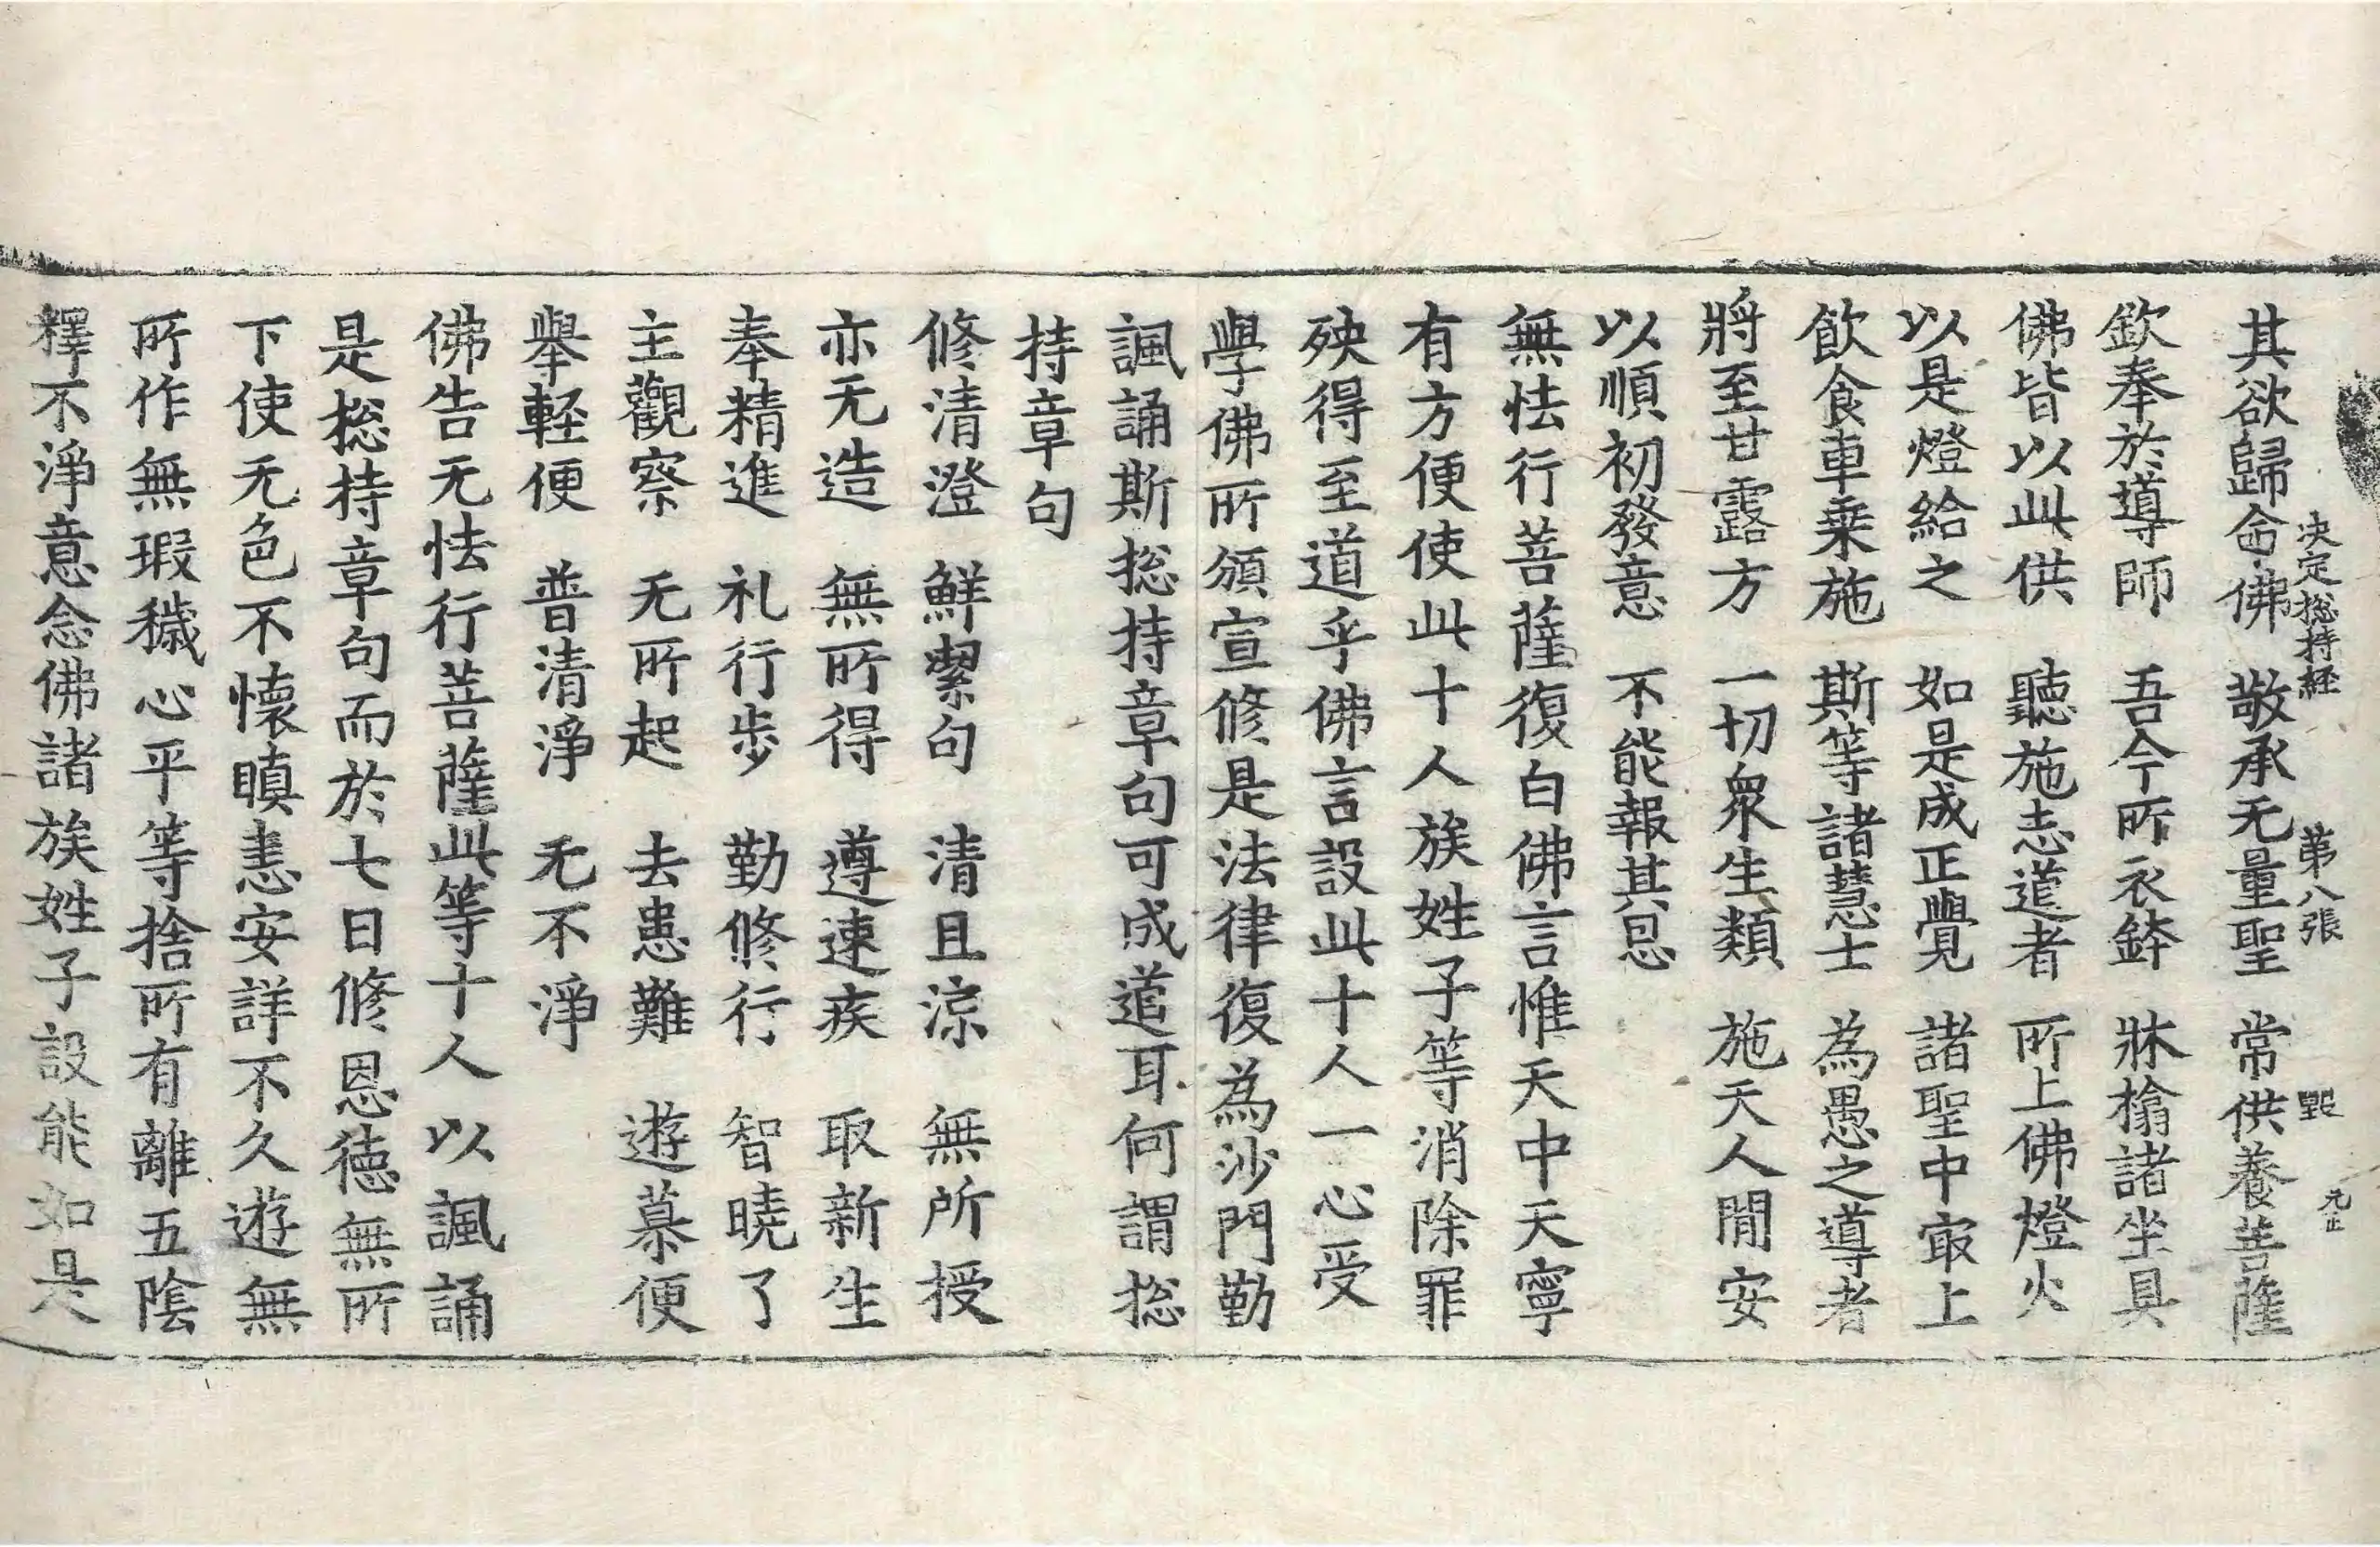 决定捴持経 第八張 毀 元正
其欲歸命佛 敬承无量聖 常供養菩薩
欽奉於導師 吾今所衣鉢 牀榻諸坐具
佛皆以此供 聽施志道者 所上佛燈火
以是燈給之 如是成正覺 諸聖中㝡上
飲食車乗施 斯等諸慧士 為愚之導者
將至甘露方 一切衆生類 施天人閒安
以順初發意 不能報其恩
無怯行菩薩復白佛言惟天中天寧
有方便使此十人族姓子等消除罪
殃得至道乎佛言設此十人一心受
學佛所頒宣修是法律復為沙門勤
諷誦斯捴持章句可成道耳何謂捴
持章句
修清澄 鮮潔句 清且涼 無所授
亦无造 無所得 遵速疾 取新生
奉精進 礼行步 勤修行 智曉了
主觀察 无所起 去患難 遊慕便
舉輕便 普清淨 无不淨
佛告无怯行菩薩此等十人以諷誦
是捴持章句而於七日修恩德無所
下使无色不懷瞋恚安詳不久遊無
所作無瑕穢心平等捨所有離五陰
釋不淨意念佛諸族姓子設能如是